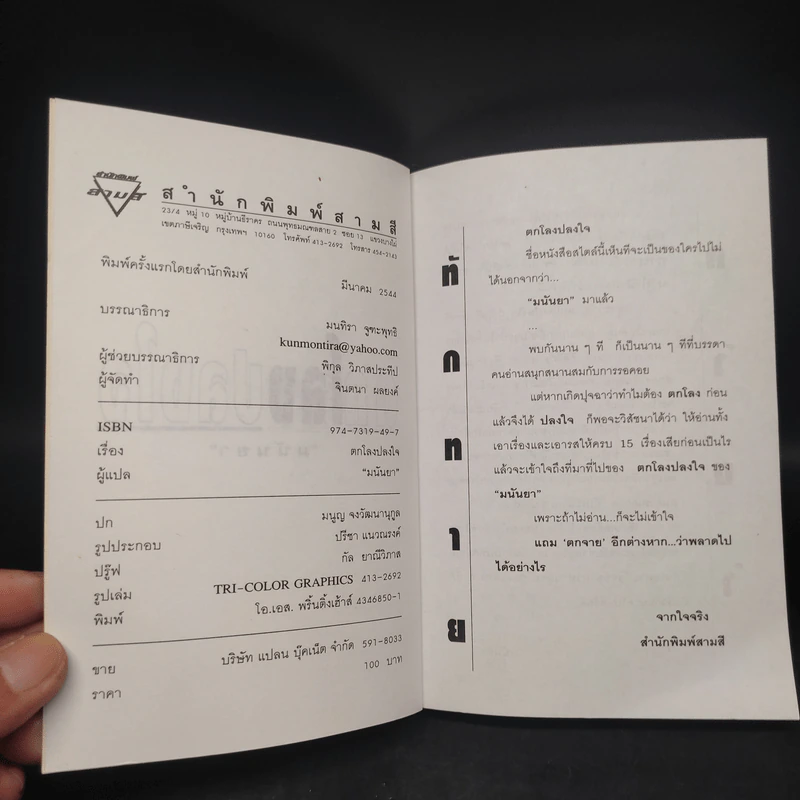 สำนักพิมพ์
สามสี
สำนักพิมพ์สามสี
23/4 หมู่ 10 หมู่บ้านธีราคร ถนนพุทธมณฑลสาย 2 ซอย 13 แขวงบางไผ่
เขตภาษีเจริญ กรุงเทพฯ 10160 โทรศัพท์ 413-2692 โทรสาร 454-2143
พิมพ์ครั้งแรกโดยสำนักพิมพ์
มีนาคม 2544
บรรณาธิการ
มนทิรา จูฑะพุทธิ
kunmontira@yahoo.com
ผู้ช่วยบรรณาธิการ พิกุล วิภาสประทีป
ผู้จัดทำ จินตนา ผลยงค์
ISBN 974-7319-49-7
เรื่อง ตกโลงปลงใจ
ผู้แปล "มนันยา"
ปก มนูญ จงวัฒนานุกูล
รูปประกอบ ปรีชา แนวณรงค์
ปรู๊ฟ กัล ยาณีวิภาส
รูปเล่ม TRI-COLOR GRAPHICS 413-2692
พิมพ์ โอ.เอส. พริ้นติ้งเฮ้าส์ 4346850-1
ขาย บริษัท แปลน บุ๊คเน็ต จำกัด 591-8033
ราคา 100 บาท
ทักทาย
ตกโลงปลงใจ
ชื่อหนังสือสไตล์นี้เห็นทีจะเป็นของใครไปไม่
ได้นอกจากว่า...
"มนันยา" มาแล้ว
...
พบกันนาน ๆ ที ก็เป็นนาน ๆ ทีที่บรรดา
คนอ่านสนุกสนานสมกับการรอคอย
แต่หากเกิดปุจฉาว่าทำไมต้อง ตกโลง ก่อน
แล้วจึงได้ ปลงใจ ก็พอจะวิสัชนาได้ว่า ให้อ่านทั้ง
เอาเรื่องและเอารสให้ครบ 15 เรื่องเสียก่อนเป็นไร
แล้วจะเข้าใจถึงที่มาที่ไปของ ตกโลงปลงใจ ของ
"มนันยา"
เพราะถ้าไม่อ่าน...ก็จะไม่เข้าใจ
แถม 'ตกจาย' อีกต่างหาก...ว่าพลาดไป
ได้อย่างไร
จากใจจริง
สำนักพิมพ์สามสี